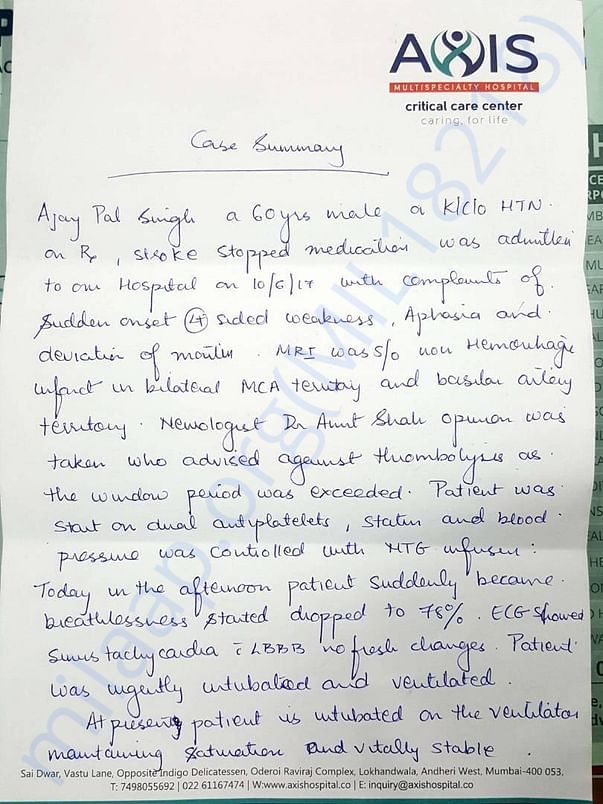 AXIS
MULTISPECIALTY HOSPITAL
critical care center
caring, for life
Case Summary
Ajay Pal Singh a 60yrs male a K/C/O HTN.
on Rx, stroke stopped medication was admitted
to our Hospital on 10/6/17 with complaints of
sudden onset sided weakness, Aphasia and.
deviation of mouth. MRI was s/o non Hemorrhagic
infarct in bilateral MCA territory and basilar artery
territory. Neurologist Dr Amit Shah opinion was
taken who advised against thrombolysis as.
the window period was exceeded. Patient was.
start on dual antiplatelets, statin and blood.
pressure was controlled with NTG infusion.
Today in the afternoon patient suddenly became.
breathlessness, started dropped to 78%. ECG showed
sinus tachycardia c̄ LBBB no fresh changes. Patient
was urgently intubated and ventilated.
At present patient is intubated on the ventilator
maintaining saturation and vitally stable.
Sai Dwar, Vastu Lane, Opposite Indigo Delicatessen, Oderoi Raviraj Complex, Lokhandwala, Andheri West, Mumbai-400 053.
T: 7498055692 | 022 61167474 | W:www.axishospital.co | E: inquiry@axishospital.co
milaap.org(MIL18218)